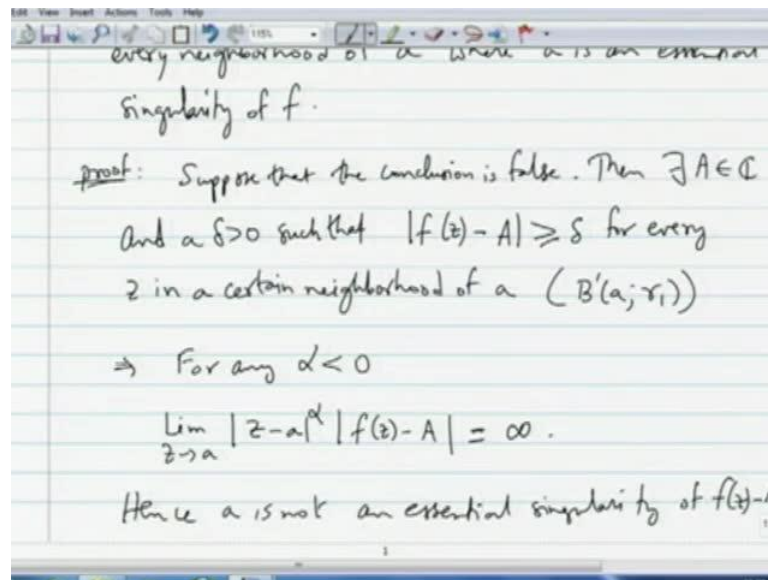 Edit View Insert Actions Tools Help
115%
every neighborhood of a where a is an essential
singularity of f.
proof: Suppose that the conclusion is false. Then ∃ A ∈ ℂ
and a δ>0 such that |f(z) - A| ≥ δ for every
z in a certain neighborhood of a (B'(a; r₁))
⇒ For any α < 0
Lim |z-a|^α |f(z) - A| = ∞.
z→a
Hence a is not an essential singularity of f(z)-
1